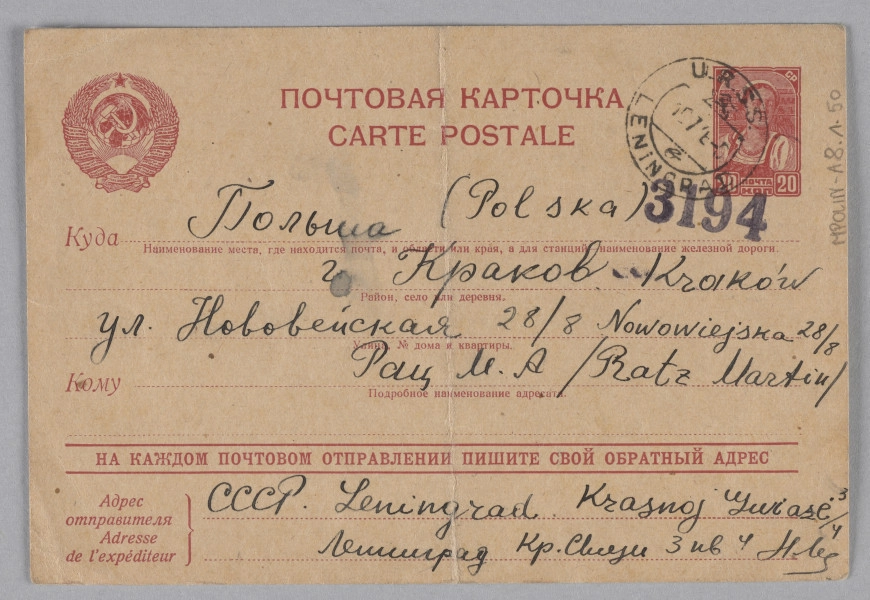 ПОЧТОВАЯ КАРТОЧКА
CARTE POSTALE
U.R.S.S.
LENINGRAD
СР
20 ПОЧТА 20
3194
Куда Польша (Polska)
Наименование места, где находится почта, и области или края, а для станций, наименование железной дороги.
г. Краков Kraków
Район, село или деревня.
ул. Нововейская 28/8 Nowowiejska 28/8
Улица, № дома и квартиры.
Кому Рац М. А /Ratz Martin/
Подробное наименование адресата.
НА КАЖДОМ ПОЧТОВОМ ОТПРАВЛЕНИИ ПИШИТЕ СВОЙ ОБРАТНЫЙ АДРЕС
Адрес отправителя
Adresse de l'expéditeur
СССР. Leningrad Krasnoj 3/4
Ленинград Кр. Связи 3 кв 4